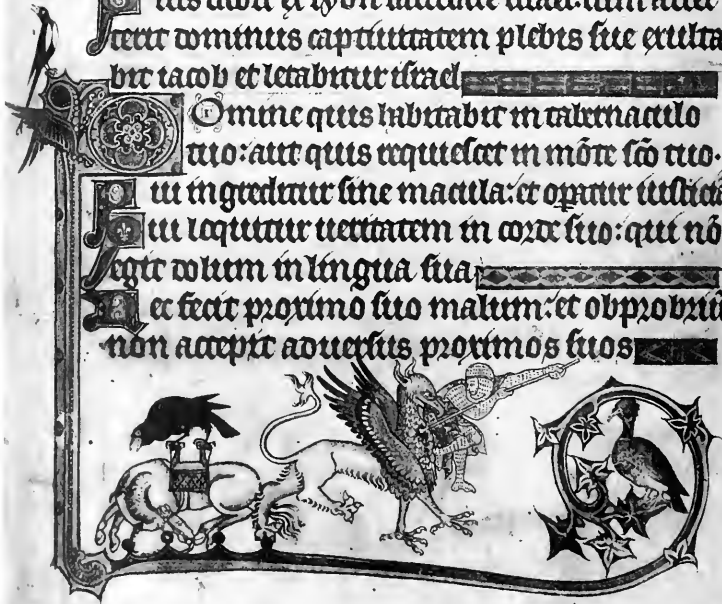 Quis dabit ex syon salutare israel: cum auer
terit dominus captiuitatem plebis sue exulta
bit iacob et letabitur israel
Domine quis habitabit in tabernaculo
tuo: aut quis requiescet in mōte sc̄o tuo.
Qui ingreditur sine macula: et op̄atur iusticiā
Qui loquitur ueritatem in corde suo: qui nō
egit dolum in lingua sua
Nec fecit proximo suo malum: et obprobriū
non accepit aduersus proximos suos